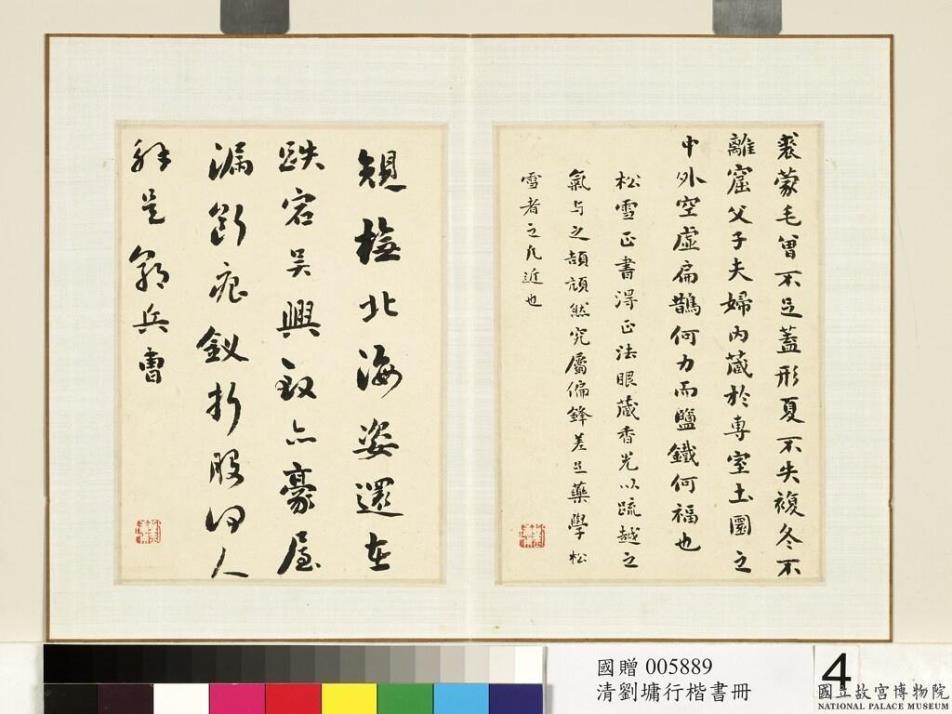 裘蒙毛曾不足蓋形夏不失複冬不
離窟父子夫婦內藏於專室土圜之
中外空虛扁鵲何力而鹽鐵何福也
松雪正書得正法眼藏香光以疏越之
氣与之頡頏然究屬偏鋒差足藥學松
雪者之凡近也
規橅北海姿還在
跌宕吳興致亦豪屋
漏痕釵折股何人
解是鄔兵曹
國贈 005889
清劉墉行楷書冊
4
國立故宮博物院
NATIONAL PALACE MUSEUM